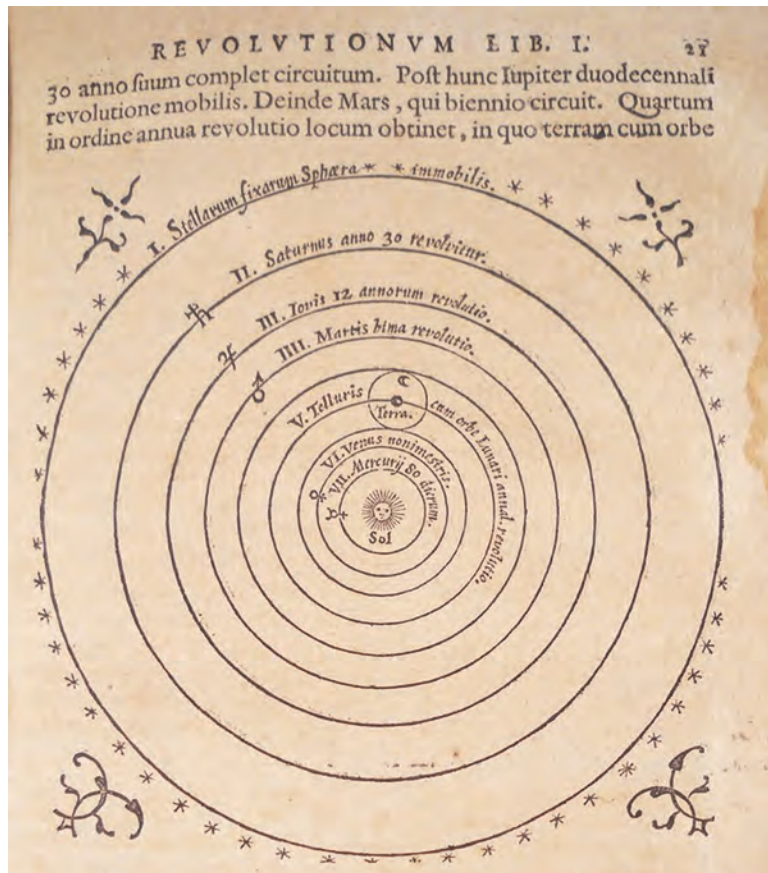 REVOLVTIONVM LIB. I. 21
30 anno ſuum complet circuitum. Poſt hunc Iupiter duodecennali
revolutione mobilis. Deinde Mars, qui biennio circuit. Quartum
in ordine annua revolutio locum obtinet, in quo terram cum orbe
I. Stellarum fixarum Sphæra immobilis.
II. Saturnus anno 30 revolvitur.
III. Iovis 12 annorum revolutio.
IIII. Martis bima revolutio.
V. Telluris cum orbe Lunari annal. revolutio.
Terra.
VI. Venus nonimestris.
VII. Mercurij 80 dierum.
Sol